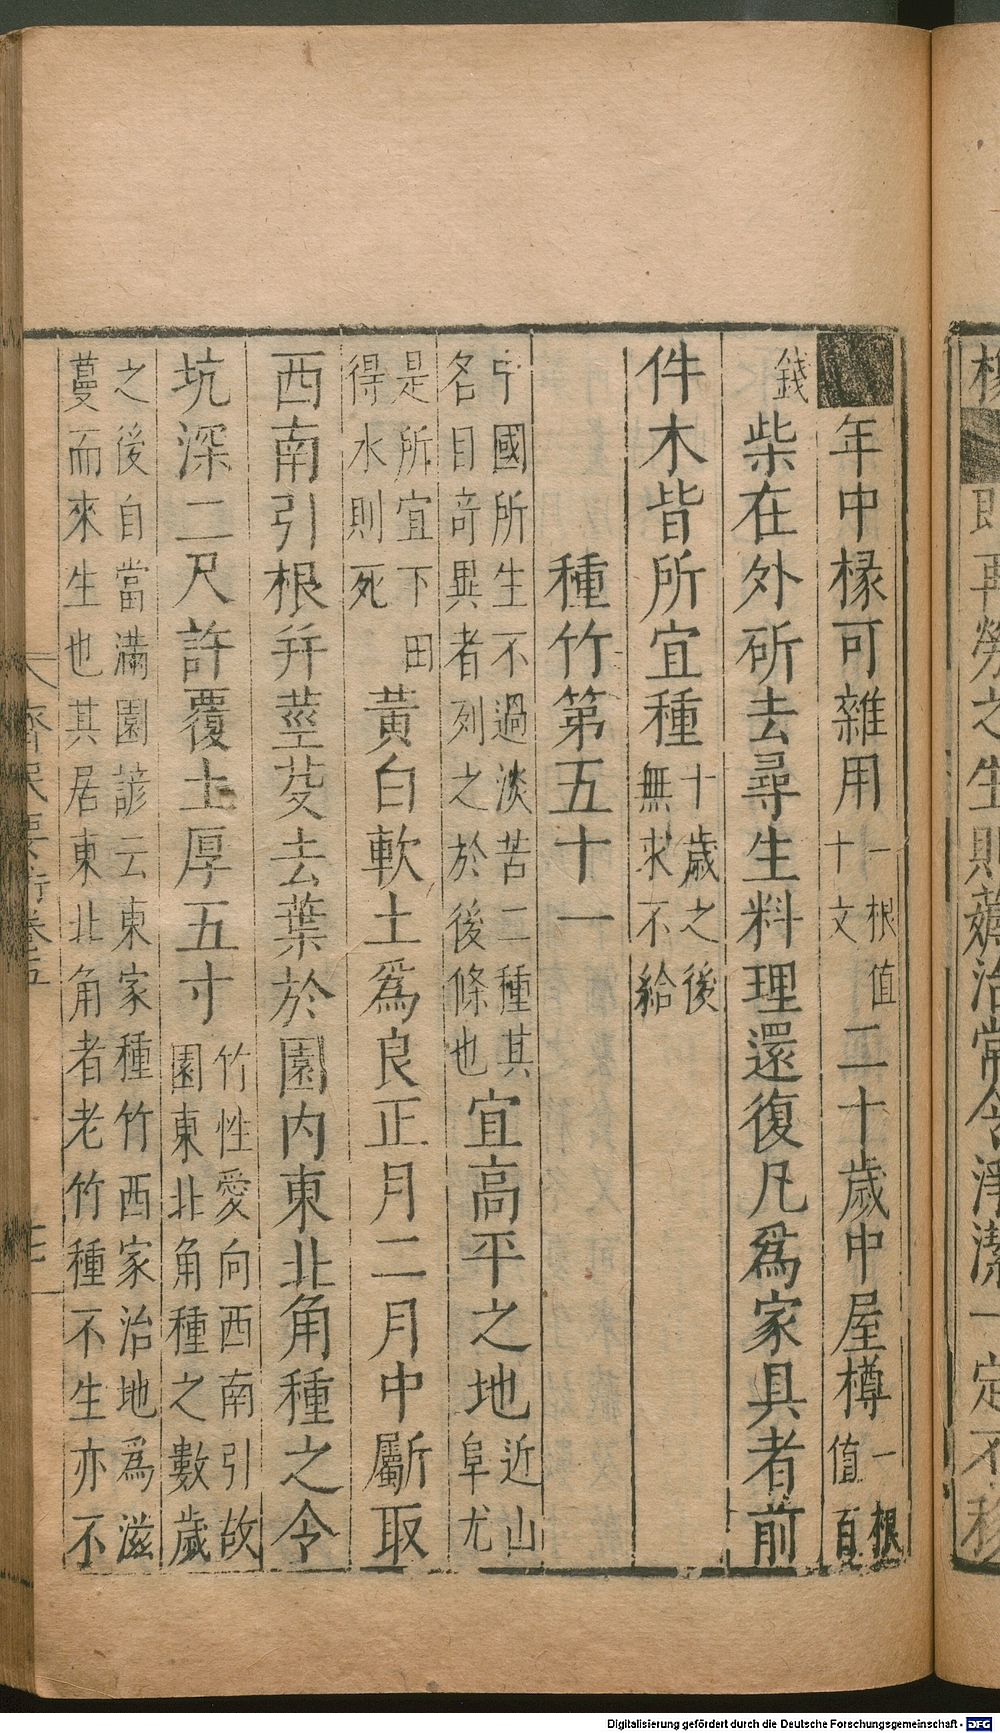 年中椽可雜用一根值十文二十歲中屋樽一根值百
錢柴在外斫去尋生料理還復凡爲家具者前
件木皆所宜種十歲之後無求不給
種竹第五十一
中國所生不過淡苦二種其名目奇異者列之於後條也宜高平之地近山阜尤
是所宜下田得水則死黃白軟土爲良正月二月中斸取
西南引根并莖芟去葉於園內東北角種之令
坑深二尺許覆土厚五寸竹性愛向西南引故園東北角種之數歲
之後自當滿園諺云東家種竹西家治地爲滋蔓而來生也其居東北角者老竹種不生亦不
齊民要術卷五
Digitalisierung gefördert durch die Deutsche Forschungsgemeinschaft - DFG